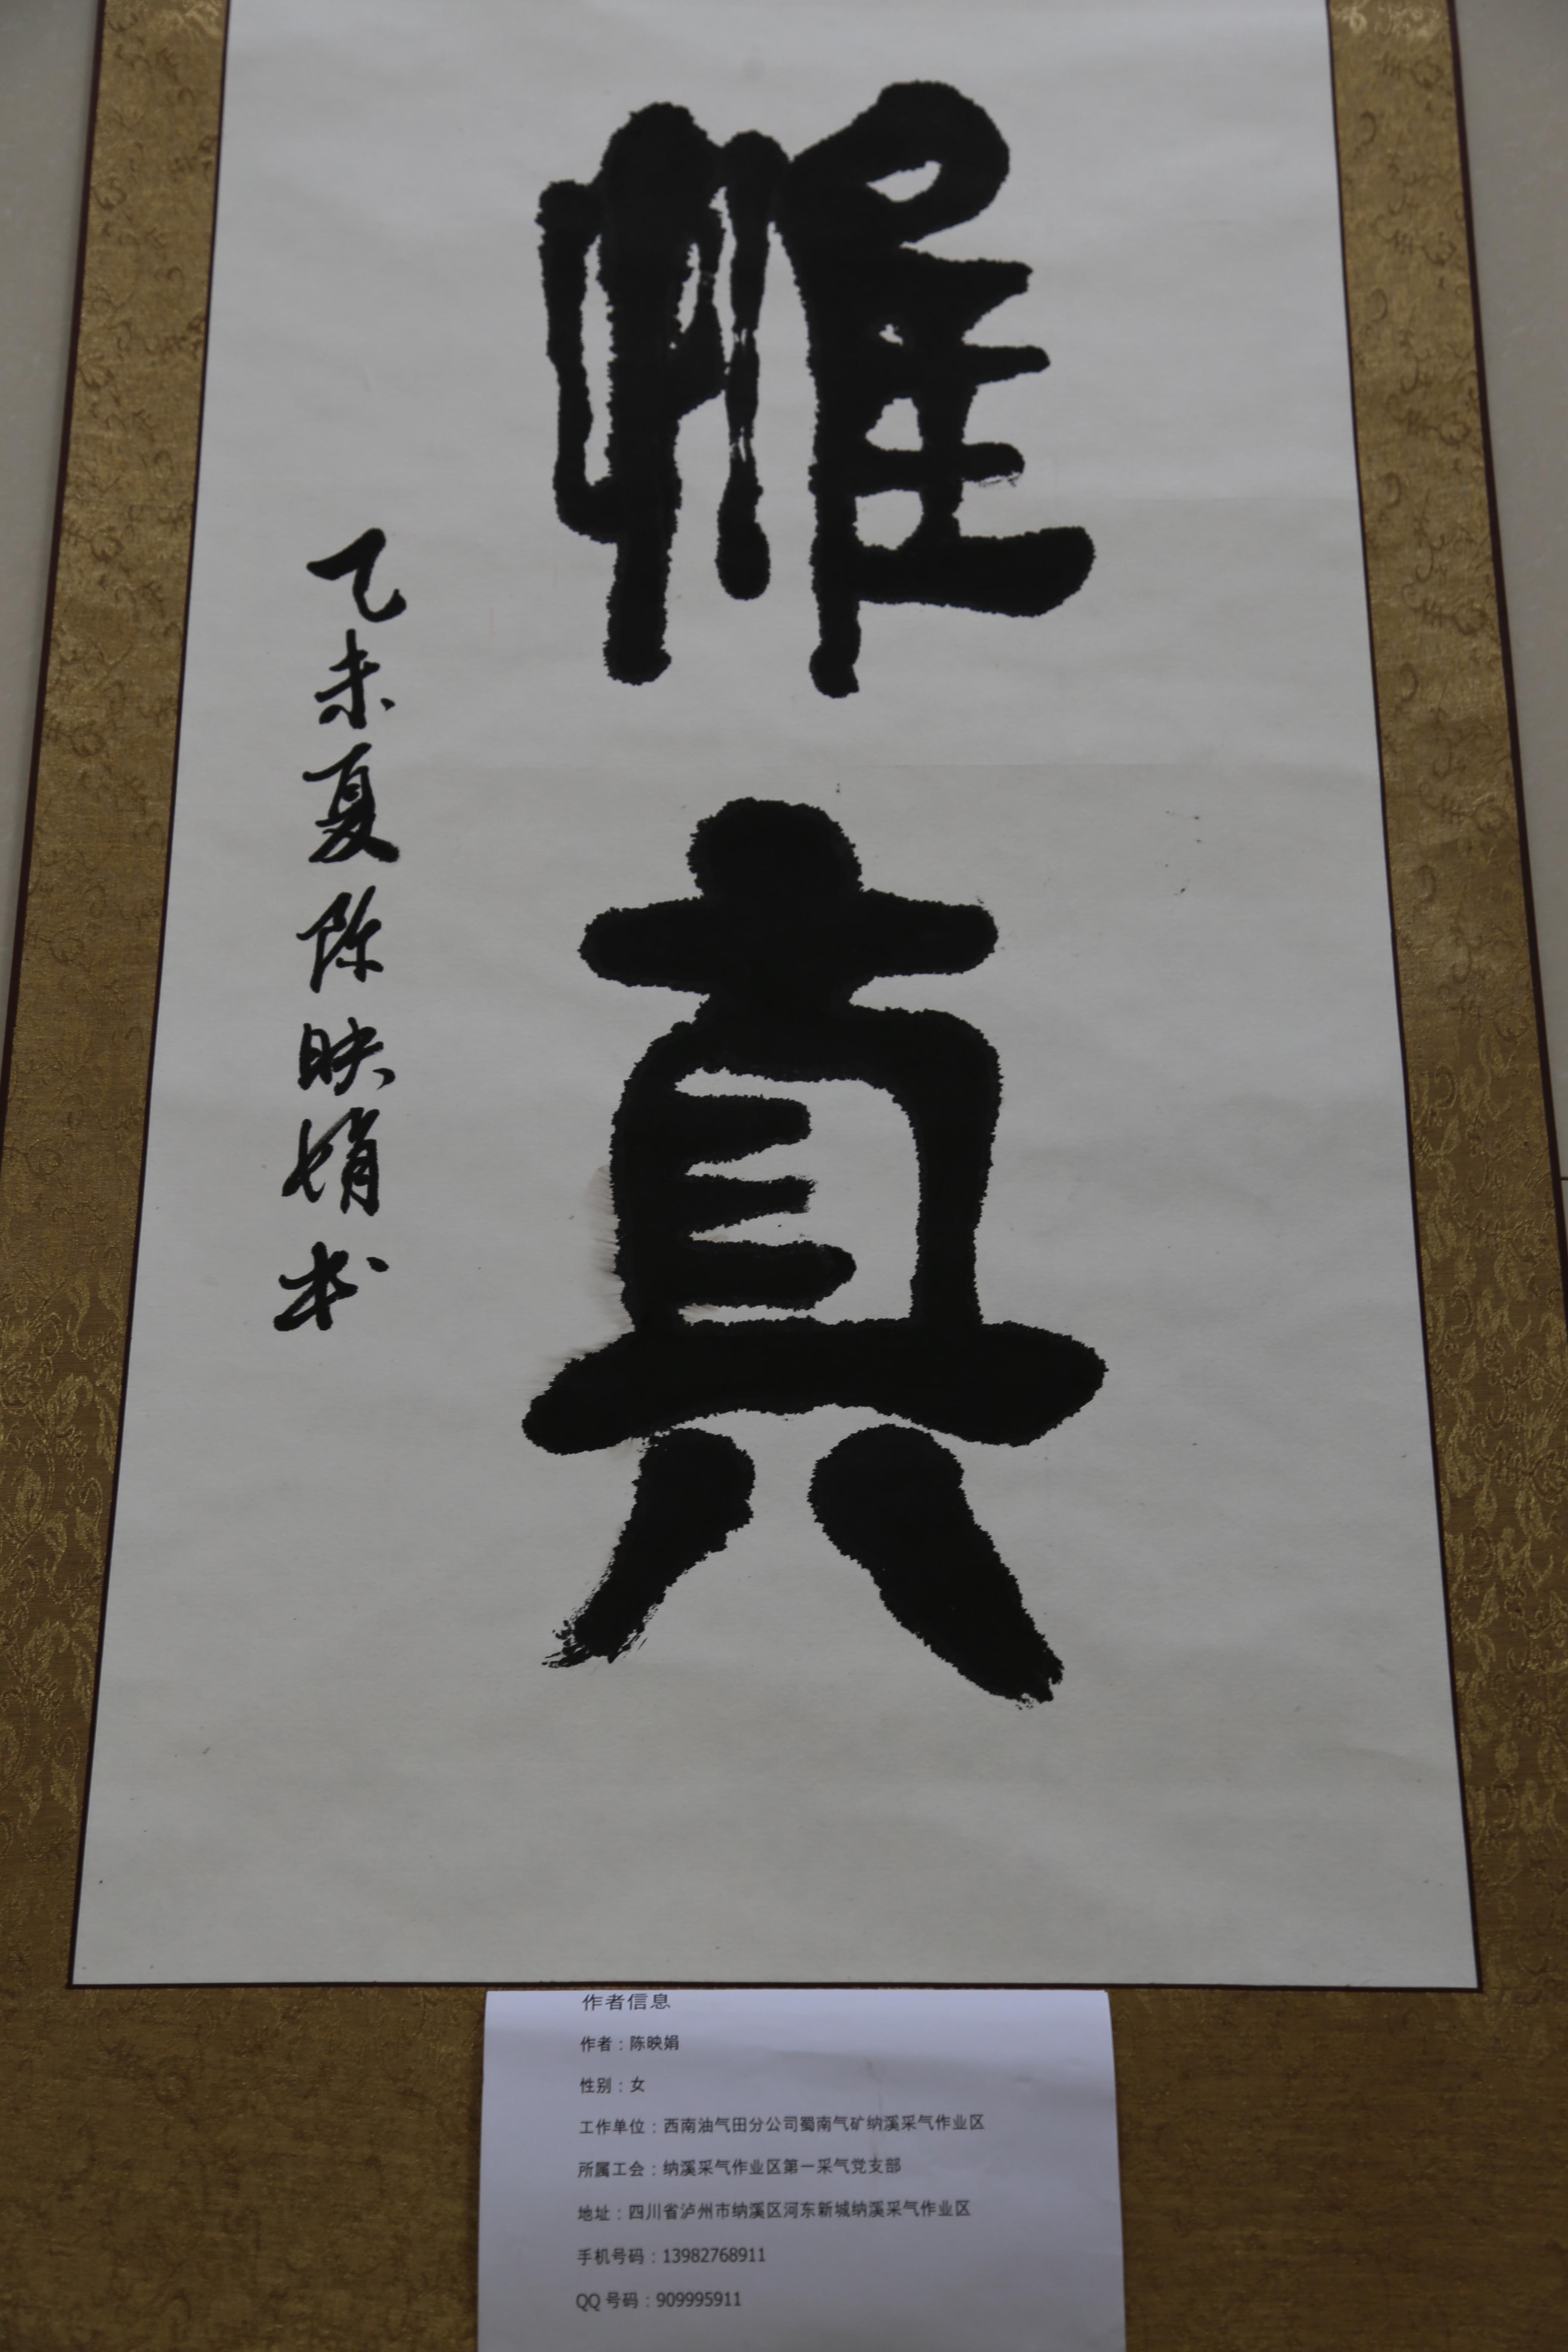 惟真
乙未夏陈映娟书
作者信息
作者：陈映娟
性别：女
工作单位：西南油气田分公司蜀南气矿纳溪采气作业区
所属工会：纳溪采气作业区第一采气党支部
地址：四川省泸州市纳溪区河东新城纳溪采气作业区
手机号码：13982768911
QQ 号码：909995911